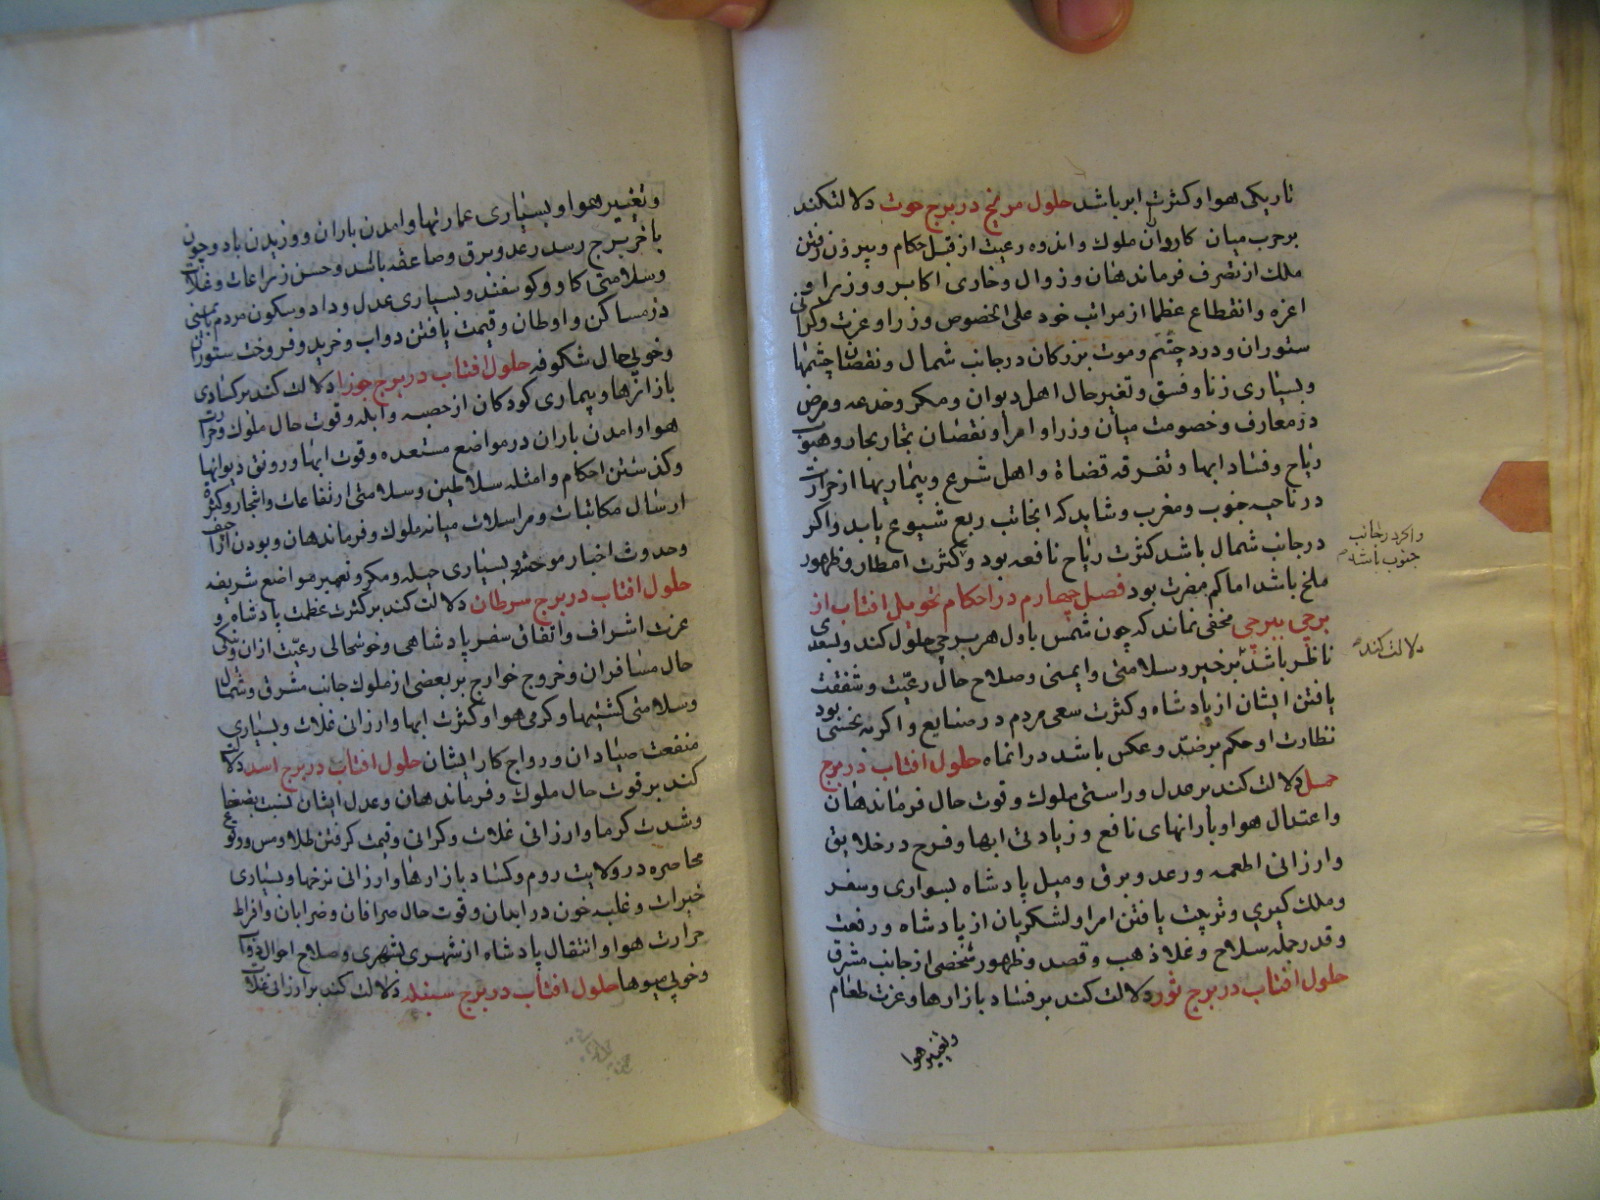 تاریکی هوا و کثرت ابر باشد حلول مریخ در برج حوت دلالت کند
بر حرب میان کاروان ملوک و اندوه رعیت از قبل حکام و بیرون رفتن
ملک از تصرف فرماندهان و زوال و خاری اکابر و وزرا و
اعزه و انقطاع عظما از مراتب خود علی الخصوص وزرا و عزت و کرانی
ستوران و درد چشم و موت بزرکان در جانب شمال و نقصان چشمها
و بسیاری زنا و فسق و تغیر حال اهل دیوان و مکر و خدعه و مرض
در معارف و خصومت میان وزرا و امرا و نقصان تجار بحار و هبوب
ریاح و فساد ابها و تفرقه قضاة و اهل شرع و بیماریها از حرارت
در ناحیه جنوب و مغرب و شاید که انجانب ربع شیوع یابد و اکر
در جانب شمال باشد کثرت ریاح نافعه بود و کثرت امطار و ظهور
ملخ باشد اما کم مضرت بود فصل چهارم در احکام تحویل افتاب از
برجی ببرجی مخفی نماند که چون شمس باول هر برجی حلول کند و بسعدی
ناظر باشد بر خیر و سلامتی و ایمنی و صلاح حال رعیت و شفقت
یافتن ایشان از پادشاه و کثرت سعی مردم در صنایع و اکر به نحسی بود
نظارت او حکم بر ضد و عکس باشد در انماه حلول افتاب در برج
حمل دلالت کند بر عدل و راستی ملوک و قوت حال فرماندهان
و اعتدال هوا و بارانهای نافع و زیادتی ابها و فرح در خلایق
و ارزانی اطعمه و رعد و برق و میل پادشاه بسواری و سفر
و ملک کیری و تربیت یافتن امرا و لشکریان از پادشاه و رفعت
و قدر جمله سلاح و غلا ذهب و قصد و ظهور شخصی از جانب مشرق
حلول افتاب در برج ثور دلالت کند بر فساد بازارها و عزت طعام
و تغییر هوا
و اکر در جانب
جنوب باشد
دلالت کند
و تغییر هوا و بسیاری عمارتها و امدن باران و وزیدن باد و چون
باخر برج رسد رعد و برق و صاعقه باشد و حسن زراعات و غلات
و سلامتی کاو و کوسفند و بسیاری عدل و داد و سکون مردم بایمنی
در مساکن و اوطان و قیمت یافتن دواب و خرید و فروخت ستوران
و خوبی حال شکوفه حلول افتاب در برج جوزا دلالت کند بر کسادی
بازارها و بیماری کودکان از حصبه و ابله و قوت حال ملوک و حرارت
هوا و امدن باران در مواضع مستعده و قوت ابها و رونق دیوانها
و کذشتن احکام و امثله سلاطین و سلامتی ارتفاعات و اشجار و کثرة
ارسال مکاتبات و مراسلات میانه ملوک و فرماندهان و بودن اراجیف
و حدوث اخبار موحش و بسیاری حیله و مکر و تعمیر مواضع شریفه
حلول افتاب در برج سرطان دلالت کند بر کثرت عظمت پادشاه و
عزت اشراف و اتفاق سفر پادشاهی و خوشحالی رعیت ازان و نیکی
حال مسافران و خروج خوارج بر بعضی از ملوک جانب مشرق و شمال
و سلامتی کشتیها و کرمی هوا و کثرت ابها و ارزانی غلات و بسیاری
منفعت صیادان و رواج کار ایشان حلول افتاب در برج اسد دلالت
کند بر قوت حال ملوک و فرماندهان و عدل ایشان نسبت بضعفا
و شدت کرما و ارزانی غلات و کرانی و قیمت کرفتن طلا و مس و وقوع
محاصره در ولایت روم و کساد بازارها و ارزانی نرخها و بسیاری
خیرات و غلبه خون در ابدان و قوت حال صرافان و ضرابان و افراط
حرارت هوا و انتقال پادشاه از شهری بشهری و صلاح احوال دواب
و خوبی میوها حلول افتاب در برج سنبله دلالت کند بر ارزانی غلات